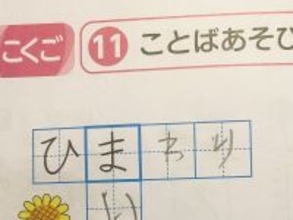 こくご
11 ことばあそび
ひまわり
い